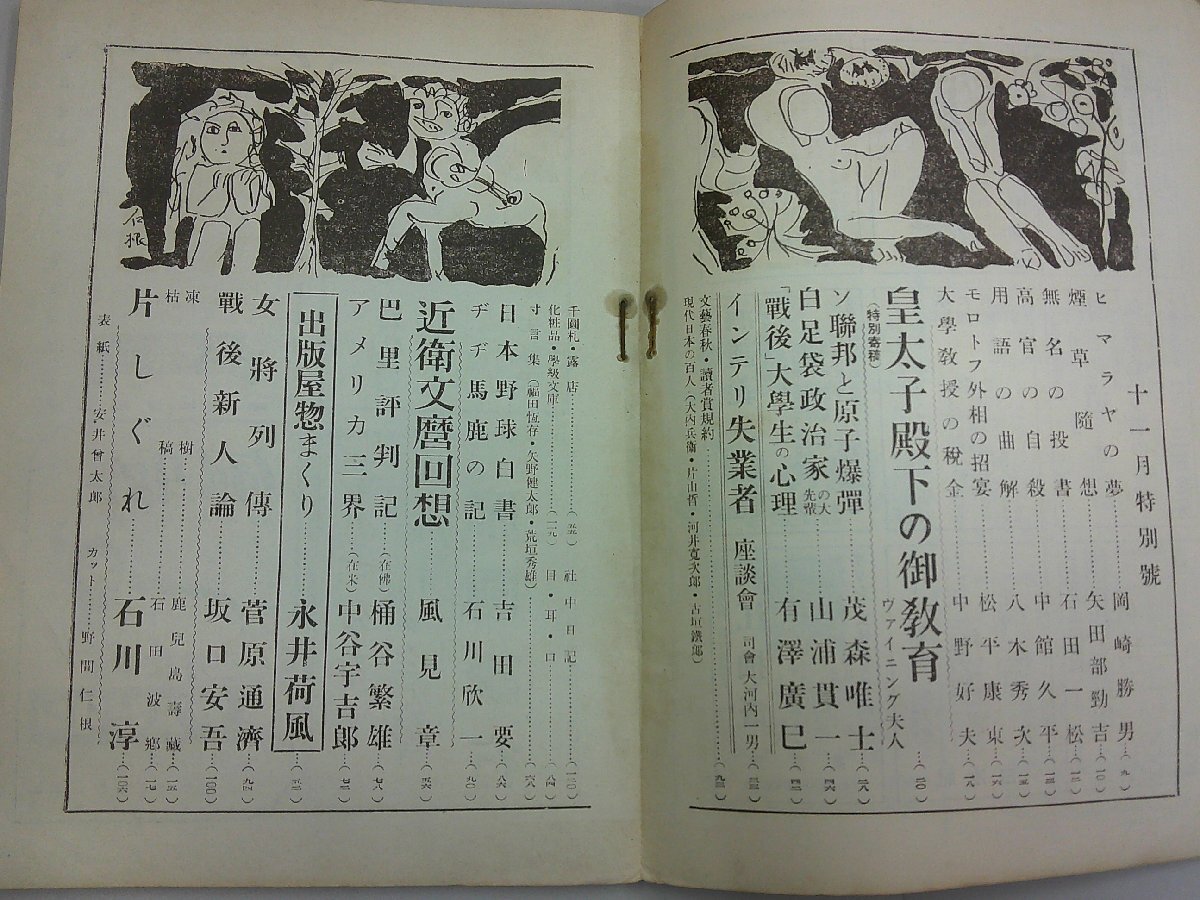 十一月特別號
ヒマラヤの夢 岡崎勝男…(九)
煙草隨想 矢田部勁吉…(一〇)
無名の投書 石田一松…(一二)
高官の自殺 中館久平…(一三)
用語の曲解 八木秀次…(一五)
モロトフ外相の招宴 松平康東…(一六)
大學教授の税金 中野好夫…(一八)
皇太子殿下の御教育 ヴァイニング夫人…(二〇)
(特別寄稿)
ソ聯邦と原子爆彈 茂森唯士…(二八)
白足袋政治家の大先輩 山浦貫一…(四六)
「戰後」大學生の心理 有澤廣巳…(四二)
インテリ失業者 座談會 司會 大河内一男…(三二)
文藝春秋・讀者賞規約…(九三)
現代日本の百人(大内兵衛・片山哲・河井寛次郎・古垣鐵郎)
千圓札・露店…(五五) 社中日記…(一三〇)
化粧品・學級文庫…(一一九) 目・耳・口…(八四)
寸言集(福田恆存・矢野健太郎・荒垣秀雄)…(六八)
日本野球白書 吉田要…(八六)
ヂヂ馬鹿の記 石川欣一…(九〇)
近衛文麿回想 風見章…(五六)
巴里評判記…(在佛) 桶谷繁雄…(七八)
アメリカ三界…(在米) 中谷宇吉郎…(七二)
出版屋惣まくり 永井荷風…(五二)
女將列傳 菅原通濟…(九四)
戰後新人論 坂口安吾…(一〇〇)
凍樹 鹿兒島壽藏…(一五)
枯稿 石田波郷…(一七)
片しぐれ 石川淳…(一〇六)
表紙 安井曾太郎 カット 野間仁根
仁根